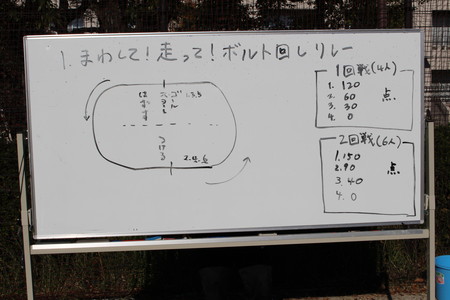 1. まわして!走って!ボルト回しリレー
1回戦(4人)
1. 120
2. 60
3. 30
4. 0
点
2回戦(6人)
1. 150
2. 90
3. 40
4. 0
点
ゴール
はずす
つける